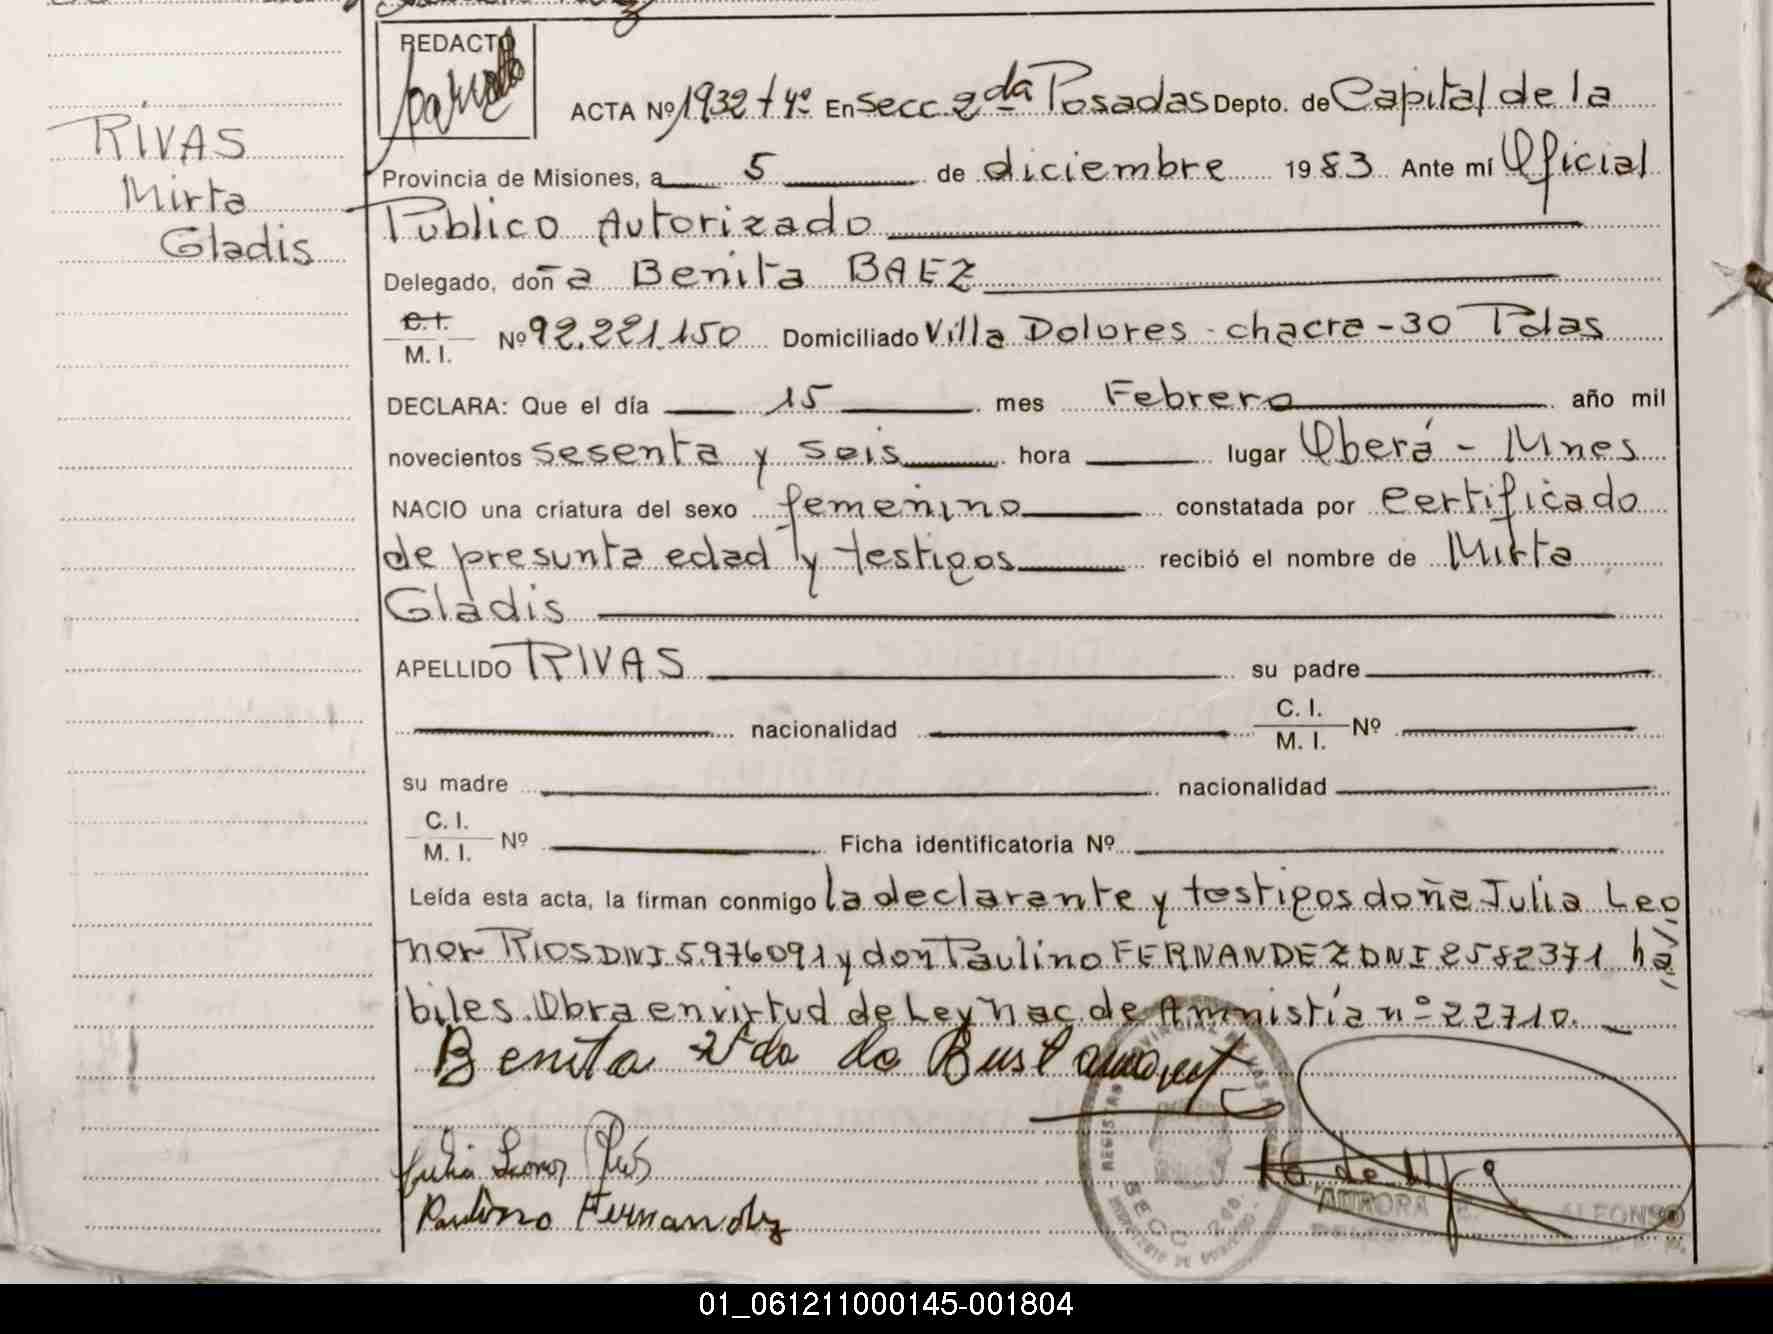 REDACTO
RIVAS
Mirta
Gladis
ACTA Nº 1932 t 4º En Secc. 2da Posadas Depto. de Capital de la
Provincia de Misiones, a 5 de diciembre 1983 Ante mí Oficial
Público Autorizado
Delegado, doña Benita BAEZ
C.I.
M. I. Nº 92.221.150 Domiciliado Villa Dolores - chacra - 30 Pdas
DECLARA: Que el día 15 mes Febrero año mil
novecientos sesenta y seis hora lugar Oberá - Mnes
NACIO una criatura del sexo femenino constatada por certificado
de presunta edad y testigos recibió el nombre de Mirta
Gladis
APELLIDO RIVAS su padre
nacionalidad C. I.
M. I. Nº
su madre nacionalidad
C. I.
M. I. Nº Ficha identificatoria Nº
Leída esta acta, la firman conmigo la declarante y testigos doña Julia Leo
nor RIOS DNI 5.976091 y don Paulino FERNANDEZ DNI 2582371 há
biles. Obra en virtud de Ley Nac de Amnistía nº 22710.
Benita Vda de
Julia Leonor Rios
Paulino Fernandez
SECC. 2da.
AURORA E. ALFONSO
01_061211000145-001804